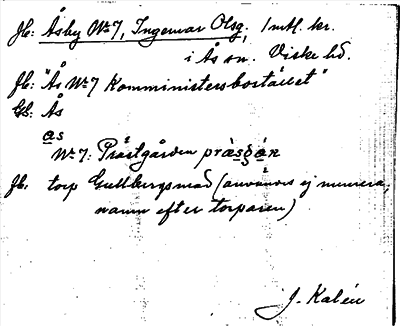 Jb: Åsby Nr 7, Ingemar Olsg, 1 mtl. kr.
i Ås sn. Viske hd.
Jb: "Ås Nr 7 Komministersbostället"
Gb: Ås
as
Nr 7: Prästgården
Jb. torp Gullbergsmad (användes ej numera,
namn efter torparen)
J. Kalén